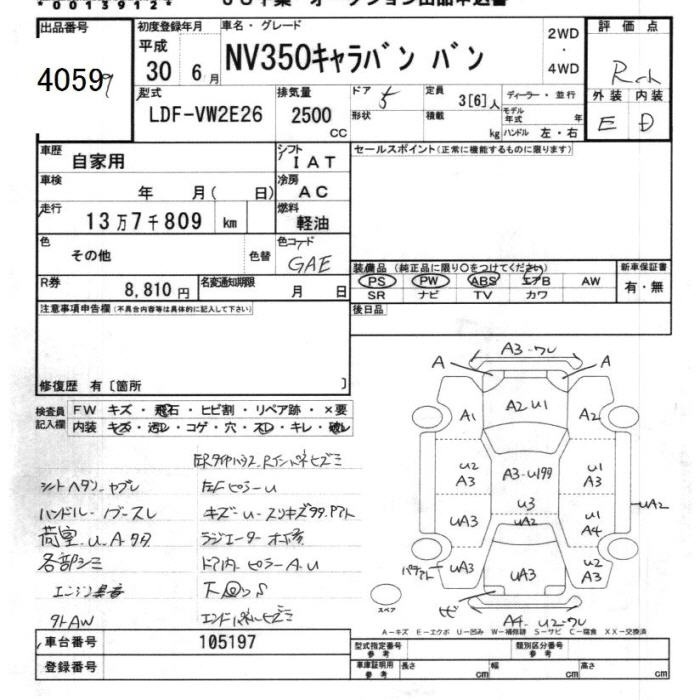 *00139124*
出品番号 初度登録年月 車名・グレード 2WD 評価点
平成 NV350キャラバン バン ・ Rch
4059 30 6月 4WD 外装 内装
型式 排気量 ドア 定員 ディーラー・並行 E D
LDF-VW2E26 2500 5 3[6]人 モデル年式 年
CC 形状 積載 kg ハンドル 左・右
車歴 シフト セールスポイント(正常に機能するものに限ります)
自家用 IAT
車検 年 月( 日) 冷房 AC
走行 13万7千809 km 燃料 軽油
色 その他 色替 色コード GAE
装備品(純正品に限り○をつけてください) 新車保証書
PS PW ABS エアB AW 有・無
SR ナビ TV カワ
R券 8,810円 名変通知期限 月 日
注意事項申告欄(不具合内容等は具体的に記入して下さい) 後日品
修復歴 有〔箇所 〕
検査員記入欄 FW キズ・飛石・ヒビ割・リペア跡・×要
内装 キズ・汚レ・コゲ・穴・スレ・キレ・破レ
シートヘタリ・ヤブレ
ハンドル・ノブスレ
荷室 U.A.タタ
各部シミ
エンジン異音
外AW
キズ・U・スリキズタタ
ドア内・ピラーA.U
A3-ワレ
A A
A2U1
A1 A2
U2 A3 A3-U199 U1 A3
U3
UA3 UA2 U1 A4 UA2
UA3 UA3 U2 A3
スペア
A4-U2-ワレ
A-キズ E-エクボ U-凹み W-補修跡 S-サビ C-腐食 XX-交換済
車台番号 105197
登録番号
型式指定番号 参考 類別区分番号 参考
車庫証明用 参考 長さ cm 幅 cm 高さ cm